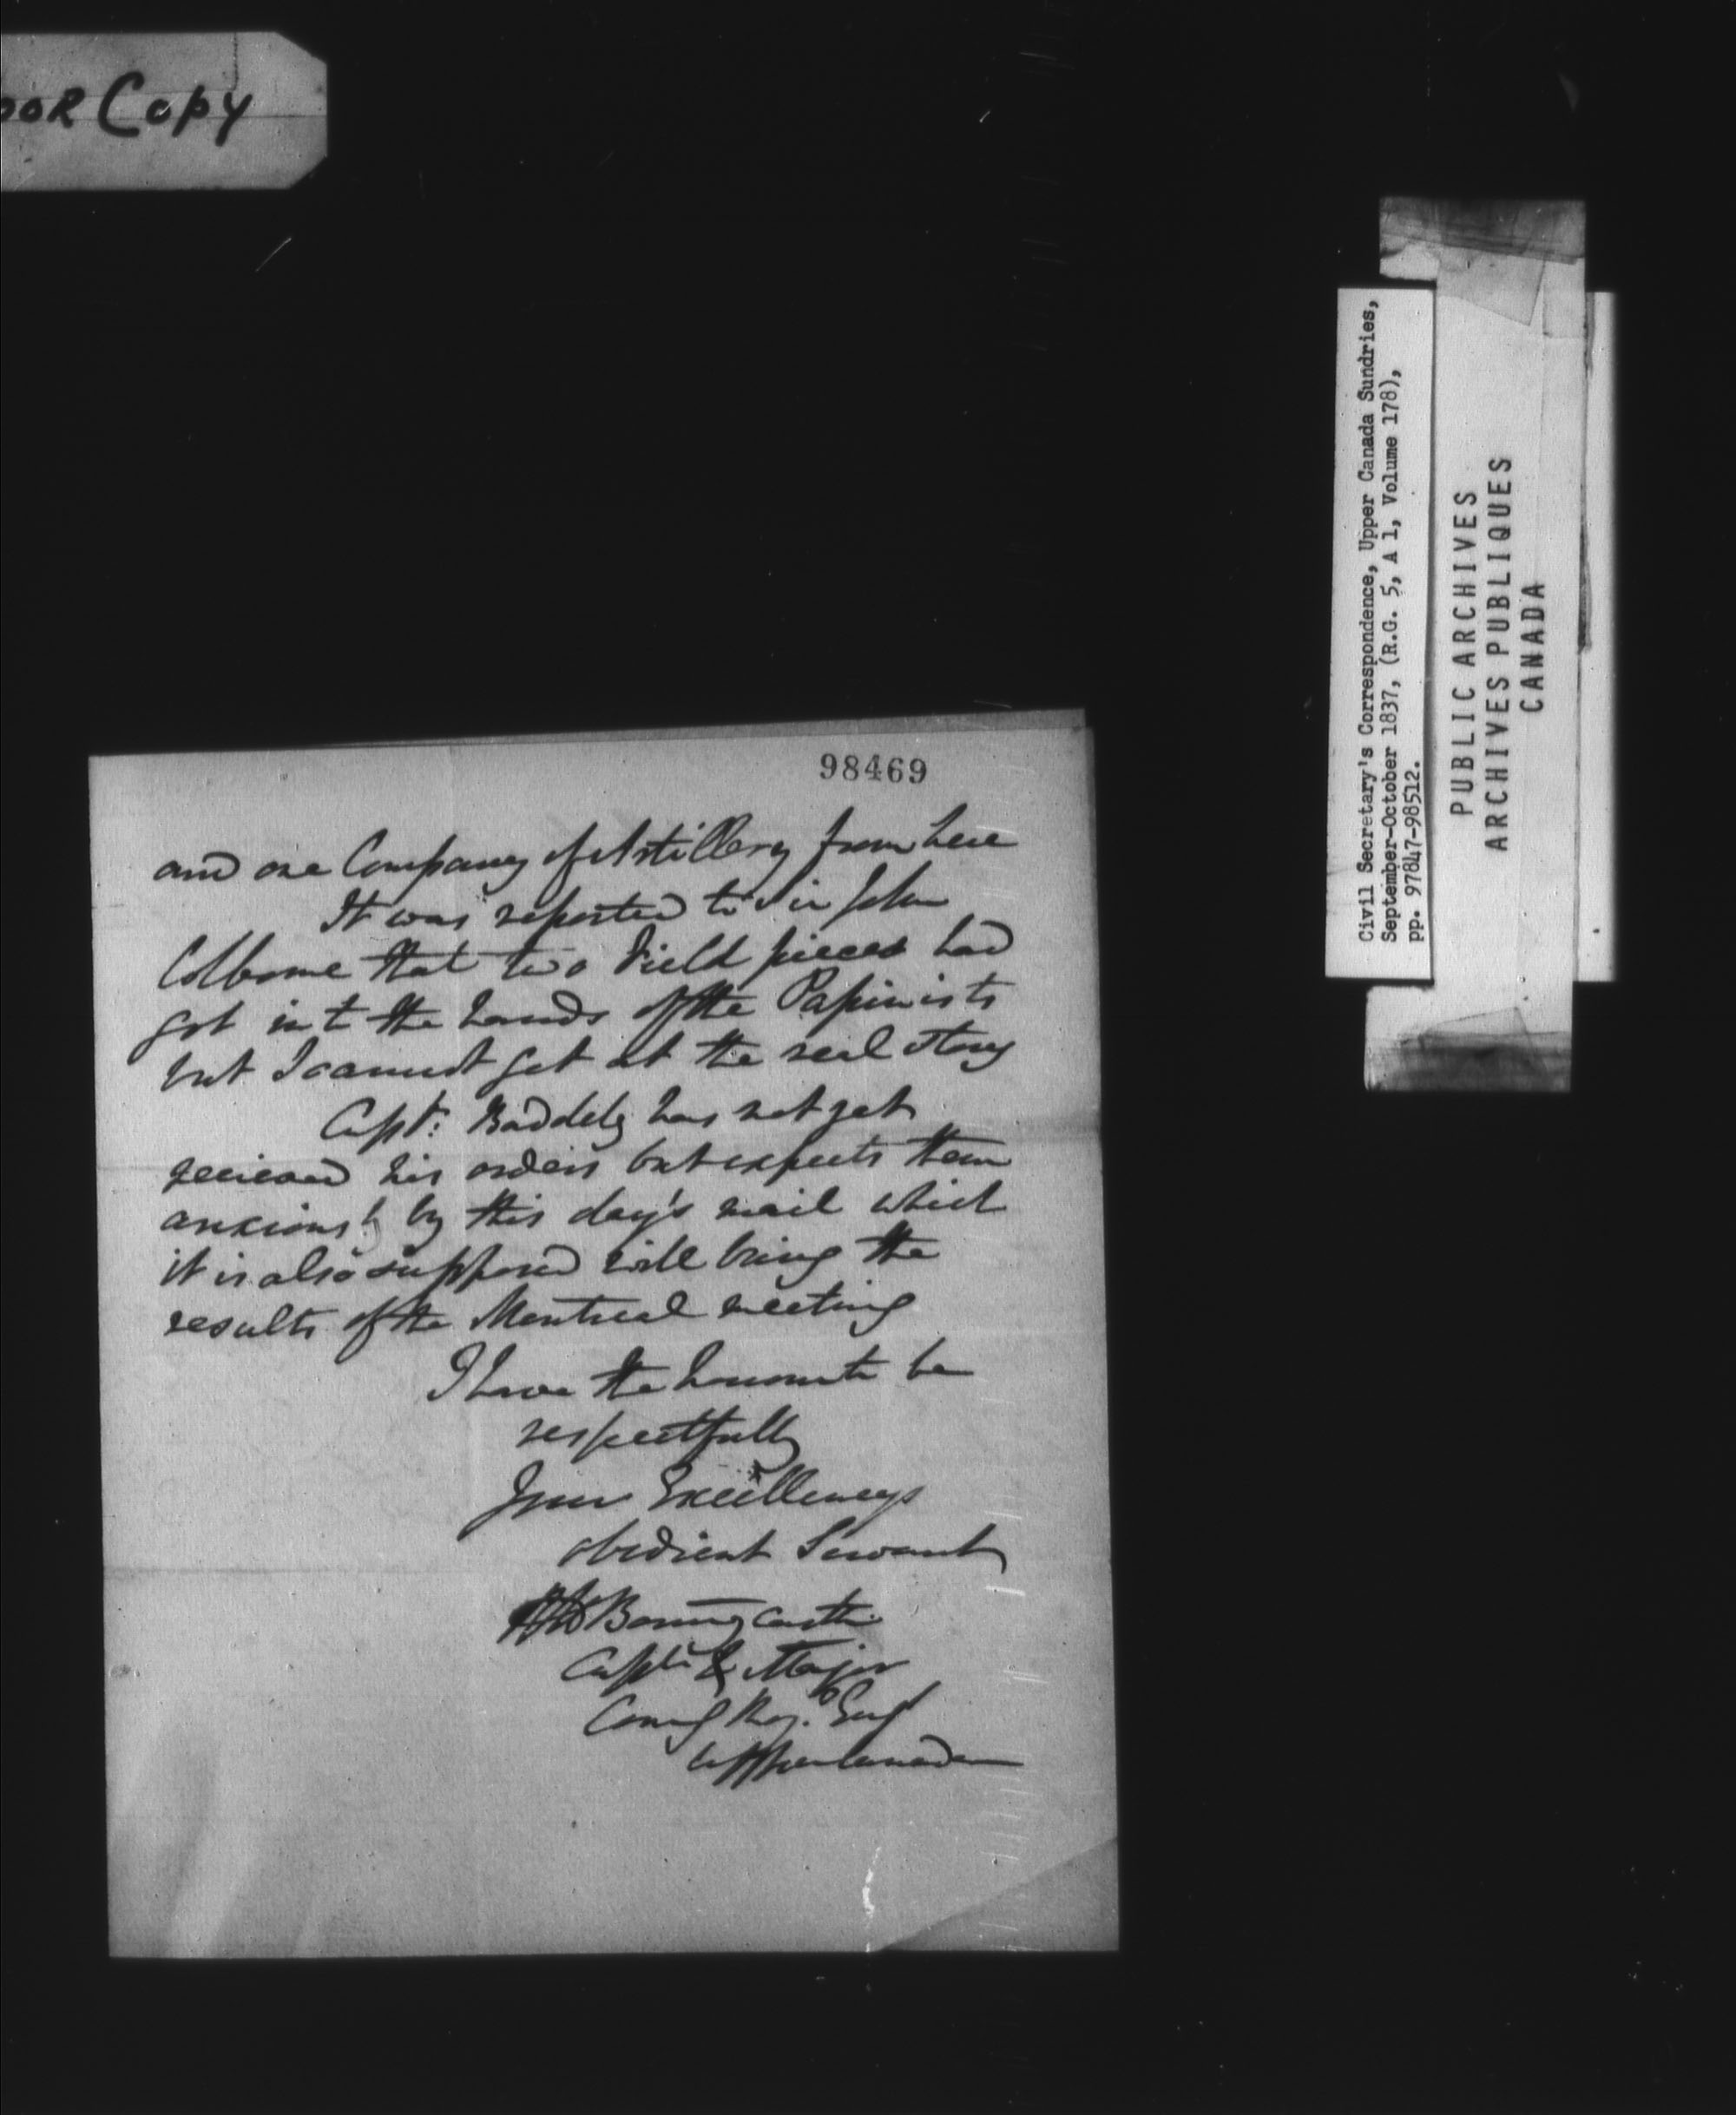 OOR COPY
98469
and one Company of Artillery from here
It was reported to Sir John
Colborne that two Field pieces had
got into the hands of the Papinists
but I cannot get at the real story
Capt: Baddely has not yet
recieved his orders but expects them
anxiously by this day's mail which
it is also supposed will bring the
results of the Montreal meeting
I have the honour to be
respectfully
Your Excellencys
obedient Servant
RH Bonnycastle
Captn & Major
Comg Roy. Eng
Upper Canada
Civil Secretary's Correspondence, Upper Canada Sundries,
September-October 1837, (R.G. 5, A 1, Volume 178),
pp. 97847-98512.
PUBLIC ARCHIVES
ARCHIVES PUBLIQUES
CANADA